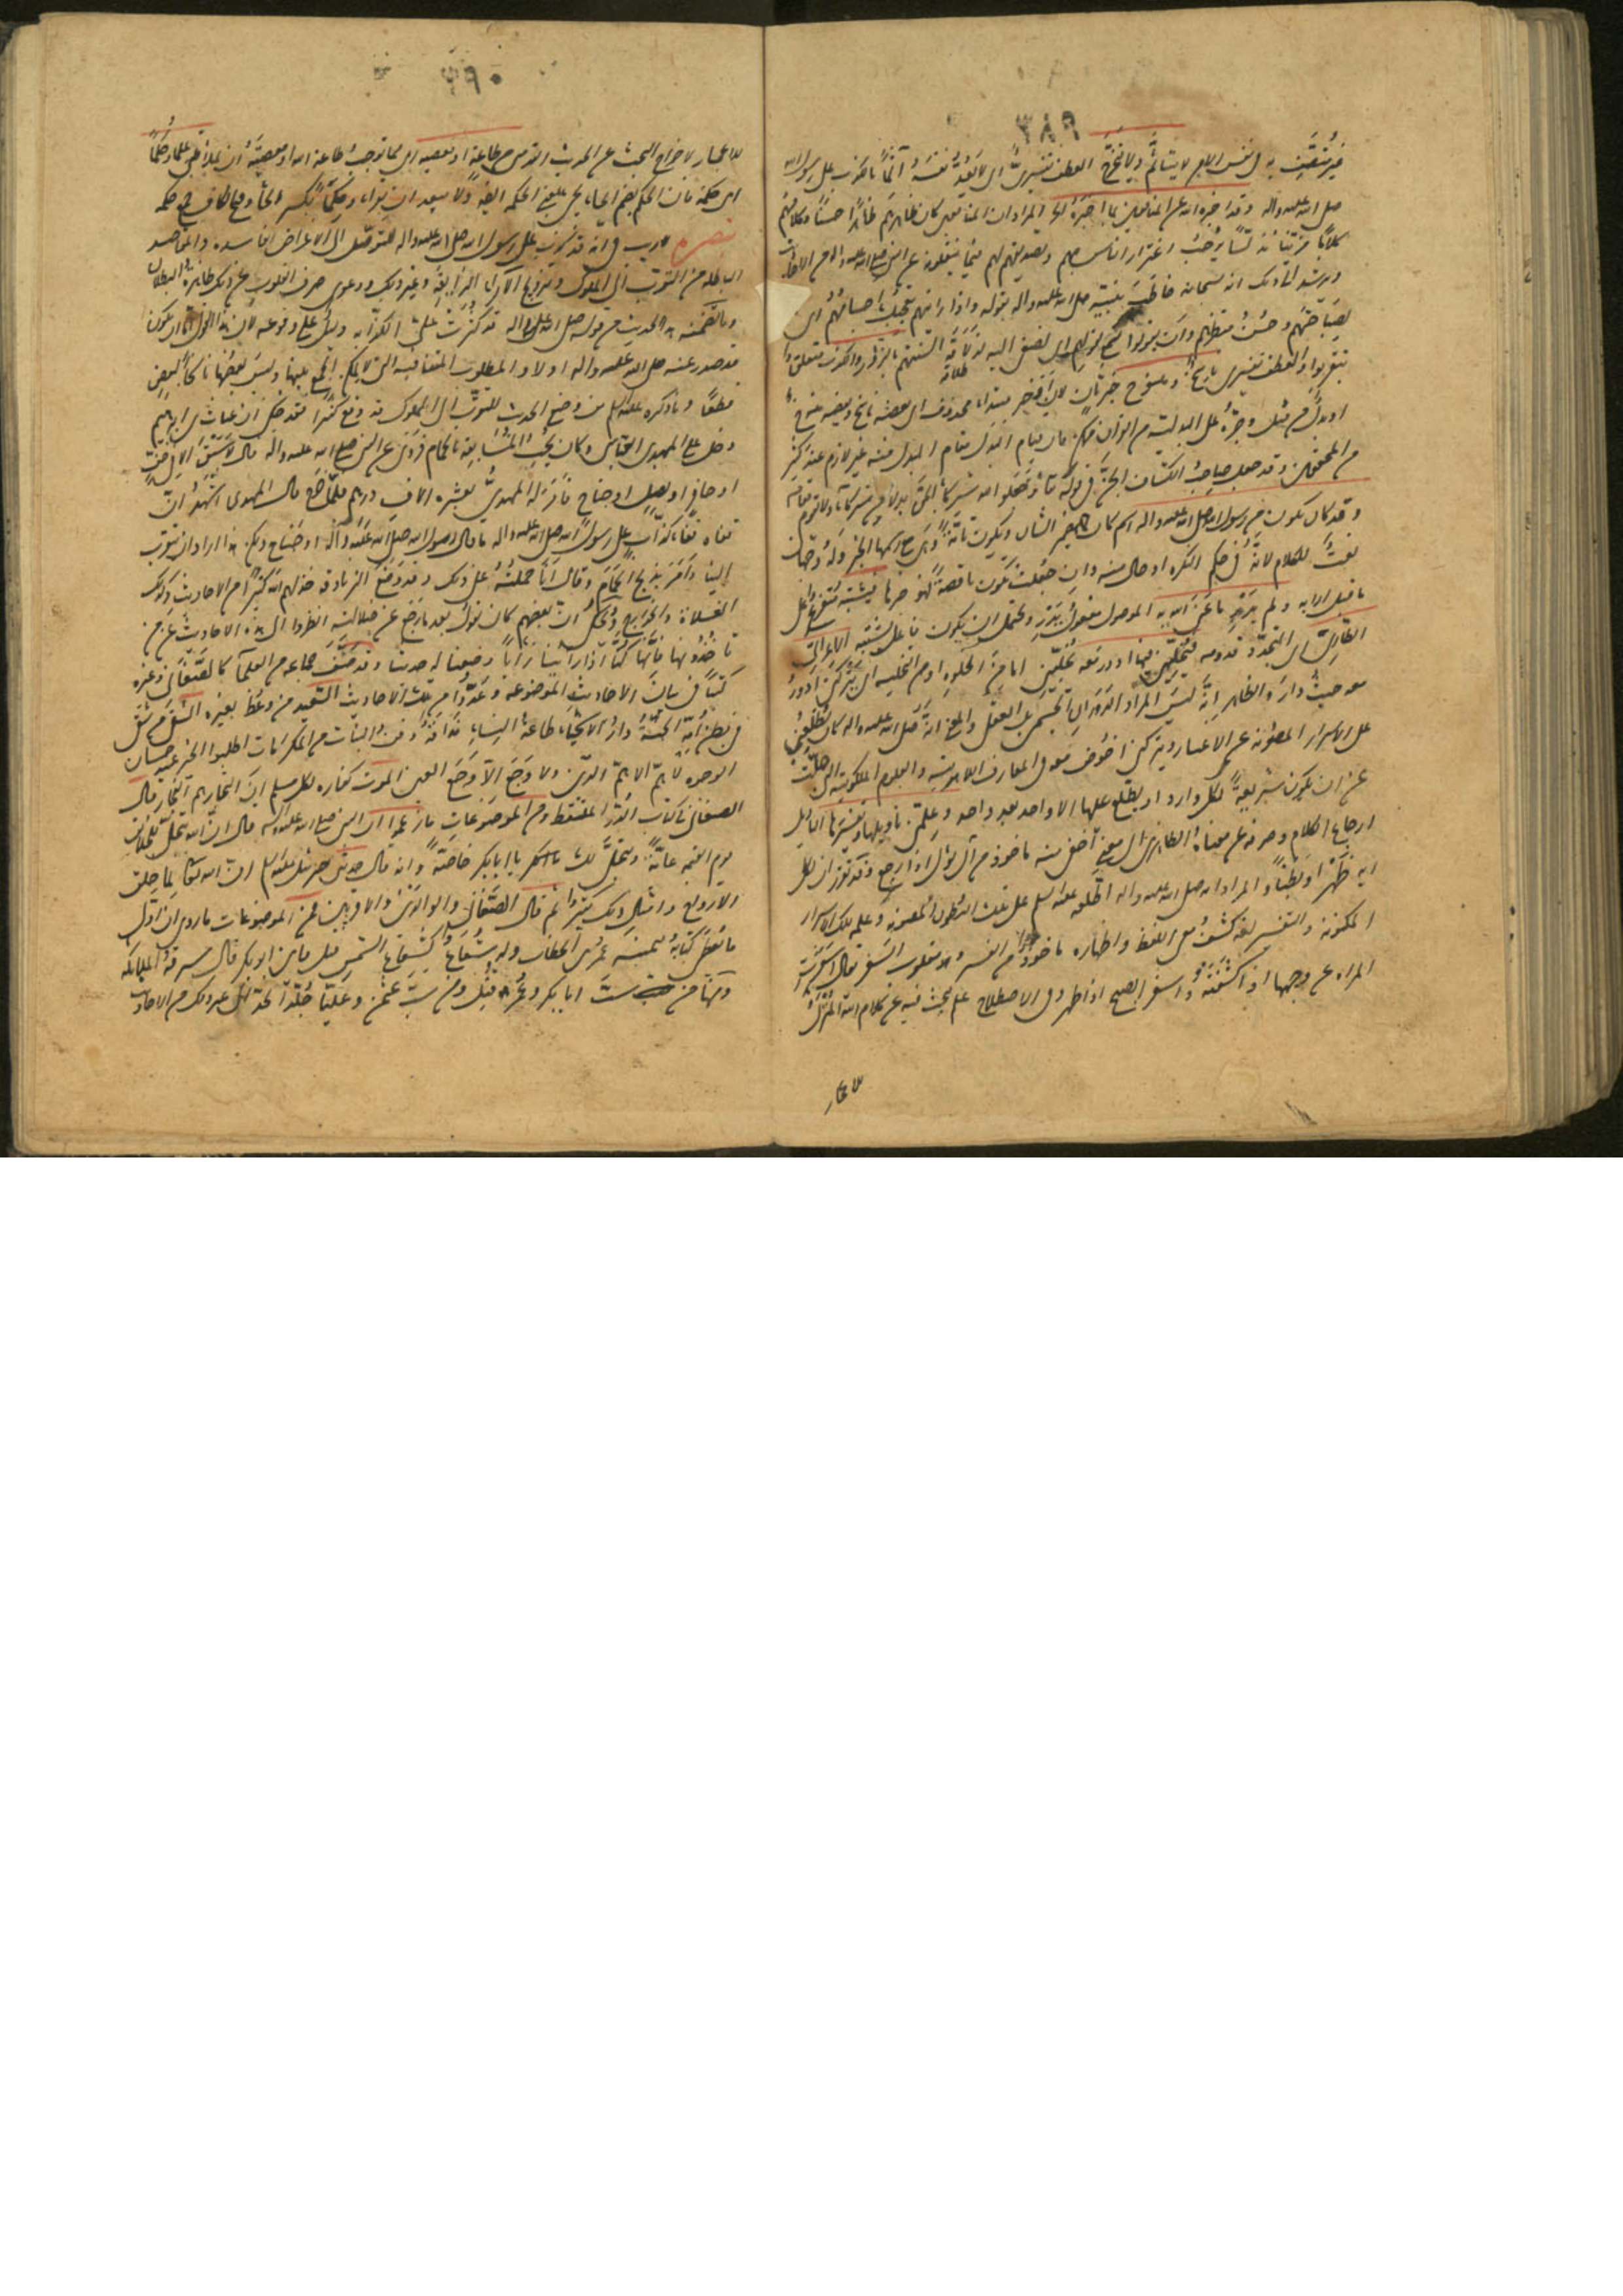 ٣٨٩
غير متصف به في نفس الامر لا يتأثم ولا يتحرج العطف تفسيري اي لا يعد نفسه آثما بالكذب على رسول الله
صلى الله عليه واله وقد اخبره الله عن المنافقين بما اخبره الخ المراد ان المنافقين كان ظاهرهم ظاهرا حسنا وكلامهم
كلاما مزيفا يوجب اغترار الناس بهم وتصديقهم لهم فيما ينقلونه عن النبي صلى الله عليه واله من الاحاديث
ويرشد الى ذلك انه سبحانه خاطب نبيه صلى الله عليه واله بقوله واذا رايتهم تعجبك اجسامهم اي
لصباحتهم وحسن منظرهم وان يقولوا تسمع لقولهم اي تصغى اليه لذلاقة السنتهم بالزور والكذب متعلق
بتقربوا والعطف تفسيري ناسخ ومنسوخ خبر ثان لان او خبر مبتدا محذوف اي بعضه ناسخ وبعضه منسوخ
او بدل من مثل وجره على البدلية من القرآن ممكن فان قيام البدل مقام المبدل منه غير لازم عند كثير
من المحققين وقد جعل صاحب الكشاف الجن في قوله تعالى وجعلوا لله شركاء الجن بدلا من شركاء ولا تقوم مقامه
وقد كان يكون من رسول الله صلى الله عليه واله اسم كان ضمير الشان ويكون تامة وهي مع اسمها الخبر وله وجهان
نعت للكلام لانه في حكم النكرة او حال منه وان جعلت يكون ناقصة فهو خبرها فيشتبه متفرع على
ما قبل الاية ولم يدر ما عنى الله به الموصول مفعول يدر ويحتمل ان يكون فاعل يشتبه الاعرابي
الطاري اي المتجدد قدومه فيخليني فيها ادور معه يخليني اما من الخلوة او من التخلية اي يتركني ادور
معه حيث دار والظاهر انه ليس المراد الدوران الجسمي بل العقلي والمعنى انه صلى الله عليه واله كان يطلعني
على الاسرار المصونة عن الاغيار ويتركني اخوض معه في المعارف اللاهوتية والعلوم الملكوتية التي جلت
عن ان يكون شريعة لكل وارد او يطلع عليها الا واحد بعد واحد وعلمني تاويلها وتفسيرها التاويل
ارجاع الكلام وصرفه عن معناه الظاهري الى معنى اخفى منه ماخوذ من آل يؤل اذا رجع وقد تقرر ان لكل
اية ظهرا وبطنا والمراد انه صلى الله عليه واله اطلعه عليه السلم على تلك البطون المصونة وعلمه تلك الاسرار
المكنونة والتفسير لغة كشف معنى اللفظ واظهاره ماخوذ من الفسر وهو مقلوب السفر يقال اسفرت
المراة عن وجهها اذا كشفته واسفر الصبح اذا ظهر وفي الاصطلاح علم يبحث فيه عن كلام الله المنزل
للاعجاز
٣٩٠
للاعجاز لاخراج البحث عن الحديث القدسي من طاعة او معصية اي مما توجب طاعة الله او معصيته ان يملأ قلبي علما وحكما
اي حكمة فان الحكم بضم الحاء يجيء بمعنى الحكمة ايضا ولا يبعد ان يقرأ وحكما بكسر الحاء وفتح الكاف جمع حكمة
تبصرة لا ريب في انه قد كذب على رسول الله صلى الله عليه واله للتوصل الى الاغراض الفاسدة والمقاصد
الباطلة من التقرب الى الملوك وترويج الآراء الزايغة وغير ذلك ودعوى صرف القلوب عن ذلك ظاهرة البطلان
وما تضمنه الحديث من قوله صلى الله عليه واله قد كثرت علي الكذابة دليل على وقوعه لان هذا القول اما ان يكون
قد صدر عنه صلى الله عليه واله اولا والمطلوب المتنافية التي لا يمكن الجمع بينها وليس بعضها ناسخا لبعض
قطعا وما ذكره عليه السلم من وضع الحديث للتقرب الى الملوك قد وقع كثيرا فقد حكي ان غياث بن ابراهيم
دخل على المهدي العباسي وكان يحب المسابقة بالحمام فروى عن النبي صلى الله عليه واله قال لا سبق الا في خف
او حافر او نصل او جناح فامر له المهدي بعشرة الاف درهم فلما خرج قال المهدي اشهد ان
قفاه قفا كذاب على رسول الله صلى الله عليه واله ما قال رسول الله صلى الله عليه وآله او جناح ولكن هذا اراد ان يتقرب
الينا وامر بذبح الحمام وقال انا حملته على ذلك وقد وضع الزنادقة خذلهم الله كثيرا من الاحاديث وكذلك
الغلاة والخوارج ويحكى ان بعضهم كان يقول بعد ما رجع عن ضلالته انظروا الى هذه الاحاديث عمن
تاخذونها فانا كنا اذا راينا رايا وضعنا له حديثا وقد صنف جماعة من العلماء كالصغاني وغيره
كتبا في بيان الاحاديث الموضوعة وعدوا من تلك الاحاديث السعيد من وعظ بغيره الشقي من شقي
في بطن امه الجنة دار الاسخياء طاعة النساء ندامة دفن البنات من المكرمات اطلبوا الخير عند حسان
الوجوه لا هم الا هم الدين ولا وجع الا وجع العين الموت كفارة لكل مسلم ان التجار هم الفجار قال
الصغاني في كتاب الدر الملتقط ومن الموضوعات ما زعموا ان النبي صلى الله عليه واله قال ان الله يتجلى للخلائق
يوم القيمة عامة ويتجلى لك يا ابا بكر خاصة وانه قال حدثني جبرئيل عليه السلم ان الله تعالى لما خلق
الارواح وامثال ذلك كثيرة ثم قال الصغاني وانا الى الوالدين والاقربين فمن الموضوعات ما روي ان اول
ما يعطى كتابه بيمينه عمر بن الخطاب وله شعاع كشعاع الشمس قيل فاين ابو بكر قال سرقته الملائكة
ومنها من سب ابا بكر وعمر قتل ومن سب عثمن وعليا جلد الحد الى غير ذلك من الاحاديث